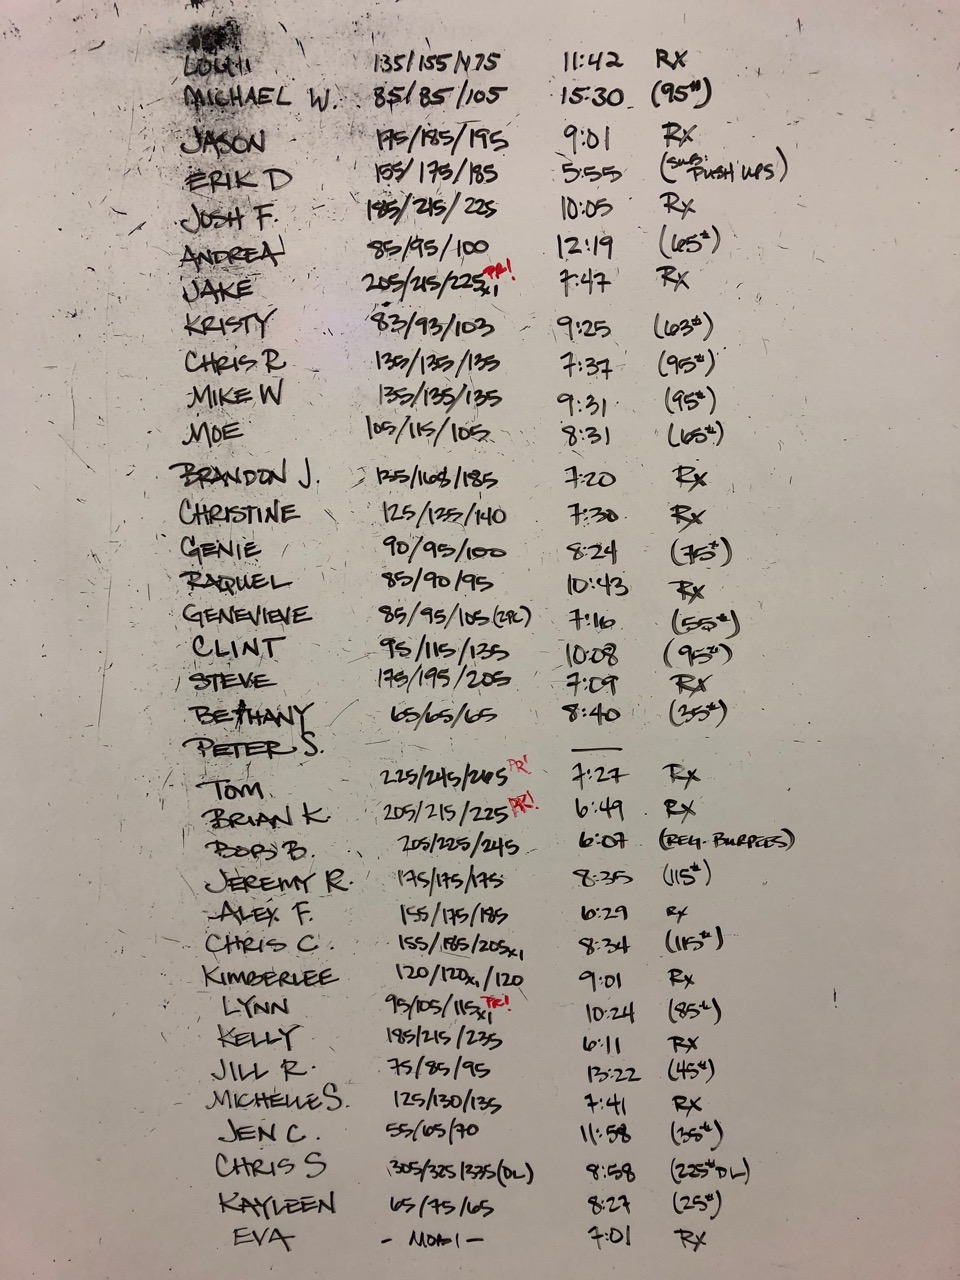 135/155/175 11:42 RX
MICHAEL W. 85/85/105 15:30 (95#)
JASON 175/185/195 9:01 RX
ERIK D 155/175/185 5:55 (SUB: PUSH UPS)
JOSH F. 185/215/225 10:05 RX
ANDREA 85/95/100 12:19 (65#)
JAKE 205/215/225x1 PR! 7:47 RX
KRISTY 83/93/103 9:25 (63#)
CHRIS R 135/135/135 7:37 (95#)
MIKE W 135/135/135 9:31 (95#)
MOE 105/115/105 8:31 (65#)
BRANDON J. 135/168/185 7:20 RX
CHRISTINE 125/135/140 7:30 RX
GENIE 90/95/100 8:24 (75#)
RAQUEL 85/90/95 10:43 RX
GENEVIEVE 85/95/105 (2PC) 7:16 (55#)
CLINT 95/115/135 10:08 (95#)
STEVE 175/195/205 7:09 RX
BETHANY 65/65/65 8:40 (35#)
PETER S. —
TOM 225/245/265 PR! 7:27 RX
BRIAN K. 205/215/225 PR! 6:49 RX
BOB B. 205/225/245 6:07 (REG. BURPEES)
JEREMY R. 175/175/175 8:35 (115#)
ALEX F. 155/175/185 6:29 RX
CHRIS C. 155/185/205x1 8:34 (115#)
KIMBERLEE 120/120x1/120 9:01 RX
LYNN 95/105/115x1 PR! 10:24 (85#)
KELLY 185/215/235 6:11 RX
JILL R. 75/85/95 13:22 (45#)
MICHELLE S. 125/130/135 7:41 RX
JEN C. 55/65/70 11:58 (35#)
CHRIS S 305/325/335 (DL) 8:58 (225# DL)
KAYLEEN 65/75/65 8:27 (25#)
EVA - MOBI - 7:01 RX